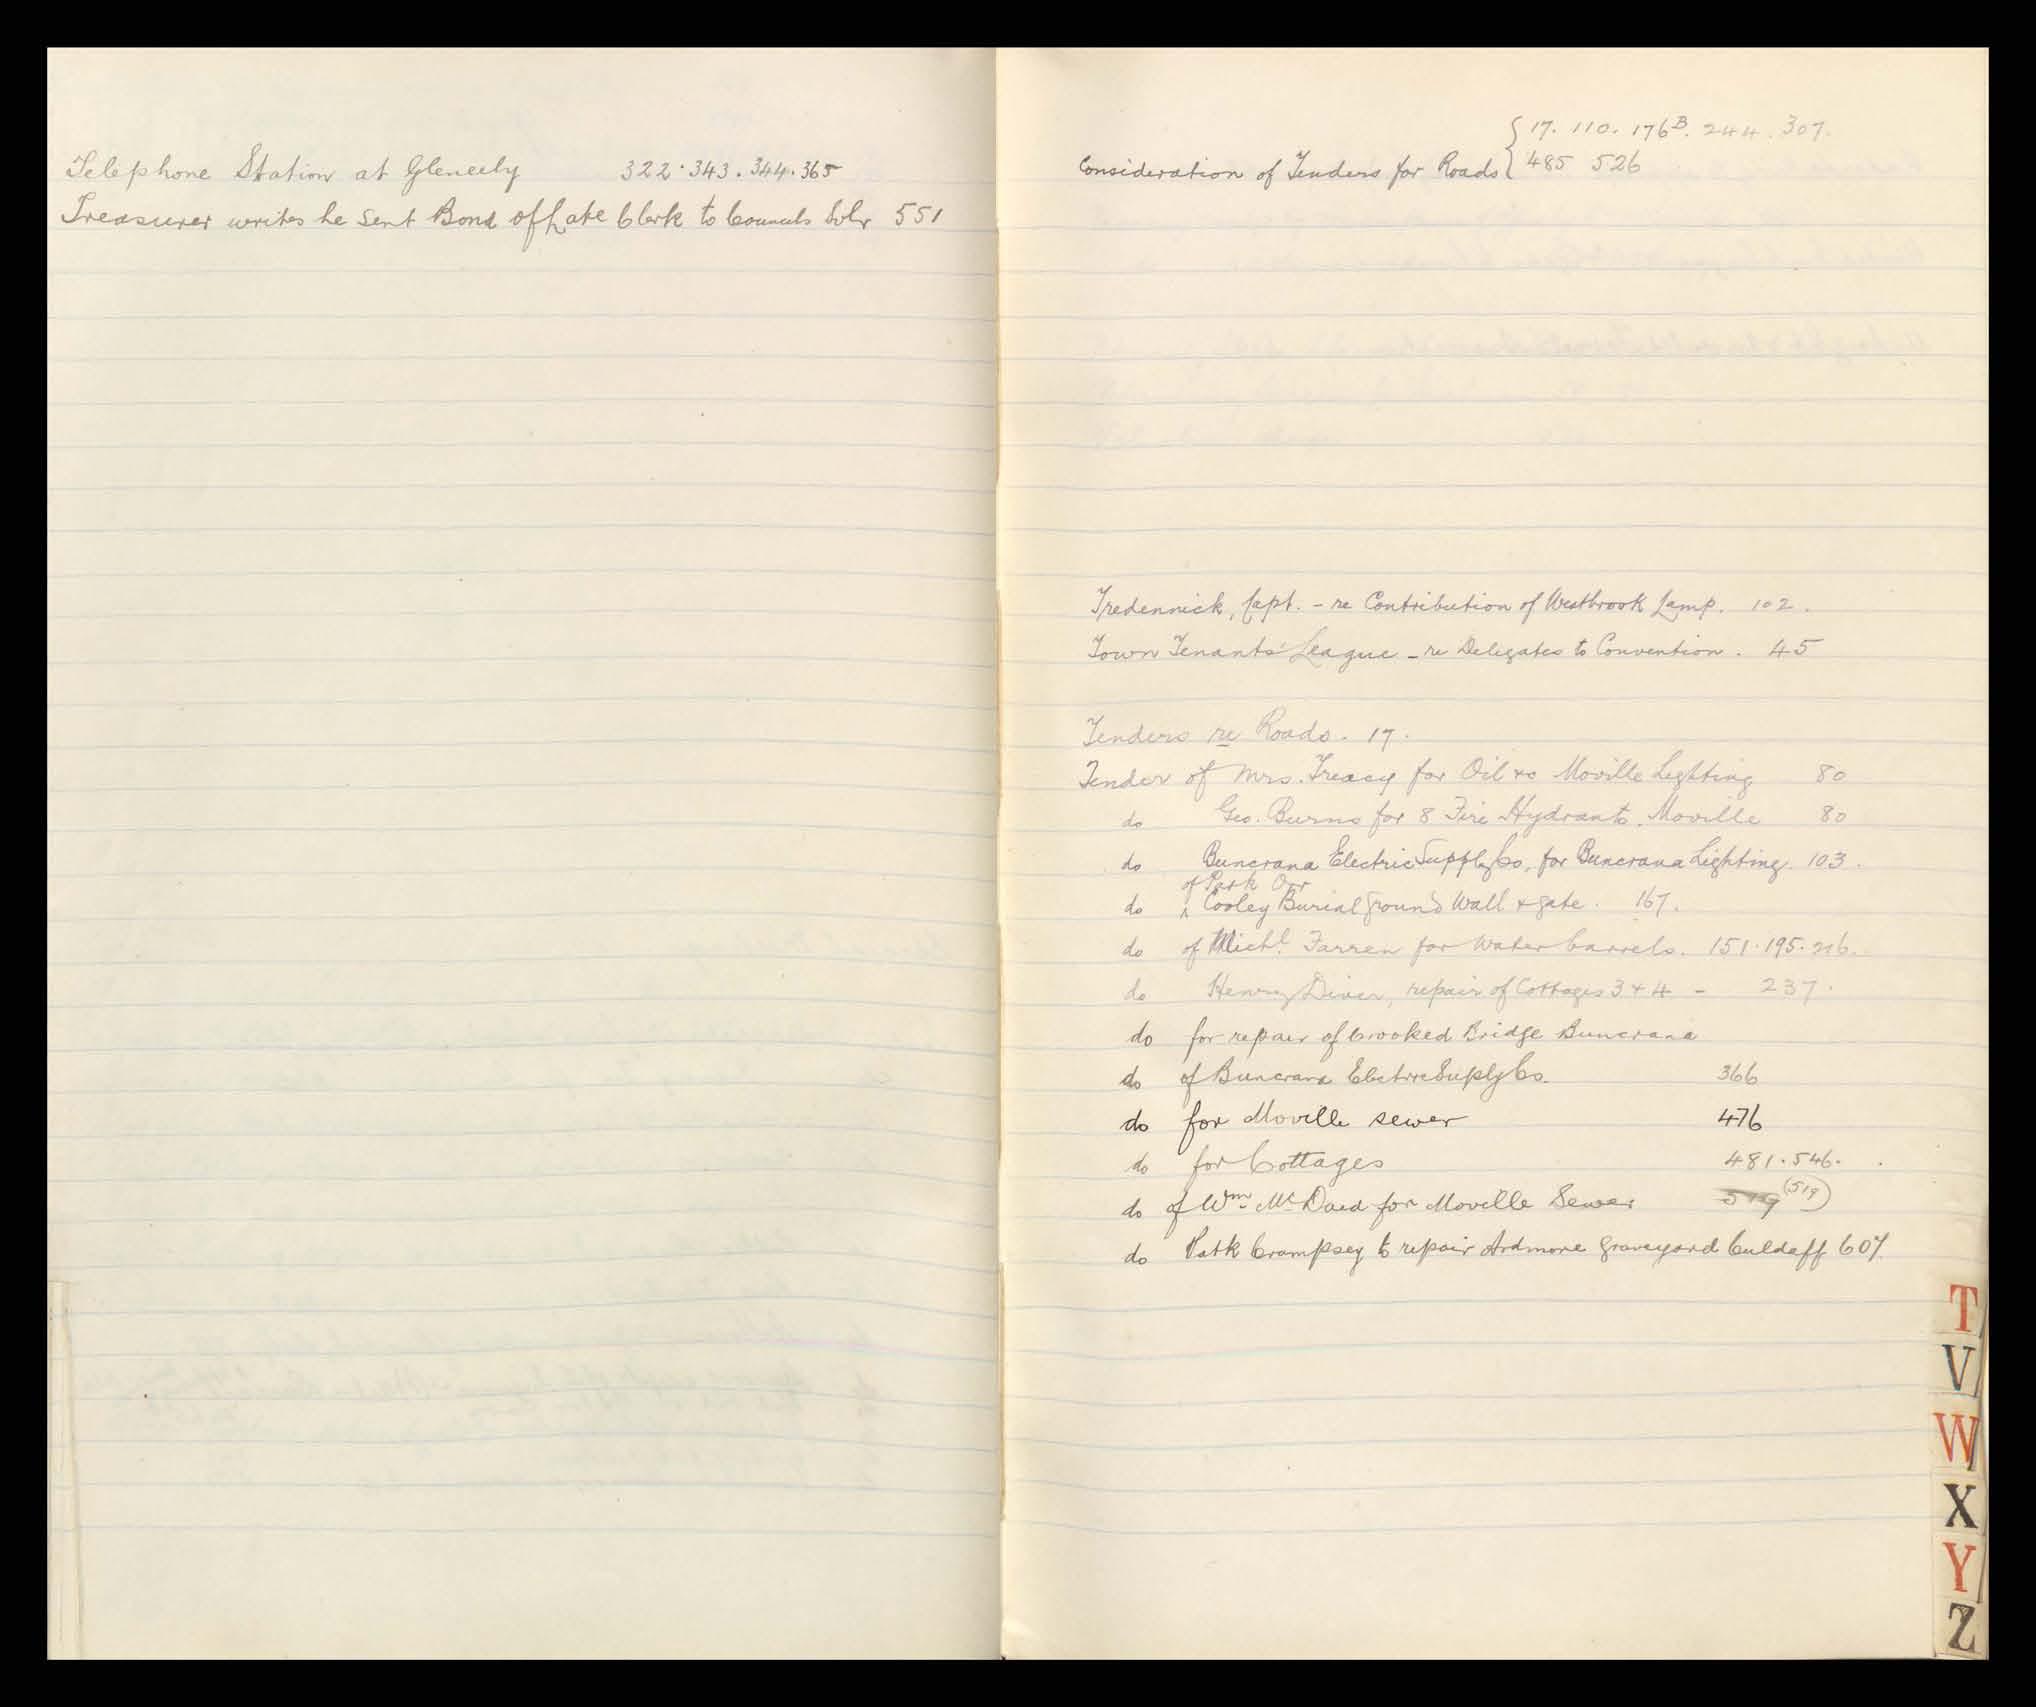 Telephone Station at Gleneely 322.343.344.365
Treasurer writes he sent Bond of Late Clerk to Councils Solr 551
17. 110. 176B. 244. 307.
Consideration of Tenders for Roads 485 526
Tredennick, Capt. - re Contribution of Westbrook Lamp. 102.
Town Tenants' League - re Delegates to Convention. 45
Tenders re Roads. 17.
Tender of Mrs. Treacy for Oil &c Moville Lighting 80
do Geo. Burns for 8 Fire Hydrants. Moville 80
do Buncrana Electric Supply Co. for Buncrana Lighting. 103.
of Patk Orr
do Cooley Burial Ground Wall & gate. 167.
do of Michl. Farren for Water barrels. 151.195.216.
do Henry Diver, repair of Cottages 3 & 4 - 237.
do for repair of Crooked Bridge Buncrana
do of Buncrana Electric Suply Co. 366
do for Moville sewer 476
do for Cottages 481.546.
do of Wm. McDaid for Moville Sewer 519 (519)
do Patk Crampsey to repair Ardmore graveyard Culdaff 607.
T
V
W
X
Y
Z